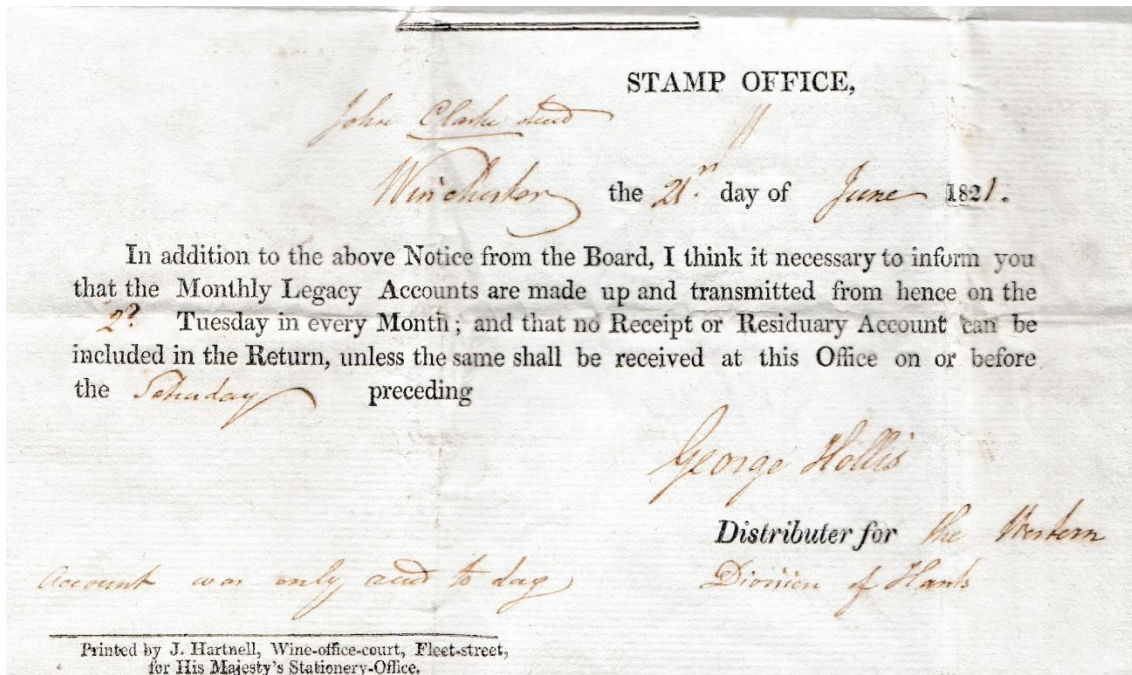 STAMP OFFICE,
John Clarke decd
Winchester the 21st day of June 1821.
In addition to the above Notice from the Board, I think it necessary to inform you
that the Monthly Legacy Accounts are made up and transmitted from hence on the
2d Tuesday in every Month; and that no Receipt or Residuary Account can be
included in the Return, unless the same shall be received at this Office on or before
the Saturday preceding
George Hollis
Distributer for the Western
Division of Hants
Account was only to day
Printed by J. Hartnell, Wine-office-court, Fleet-street,
for His Majesty's Stationery-Office.